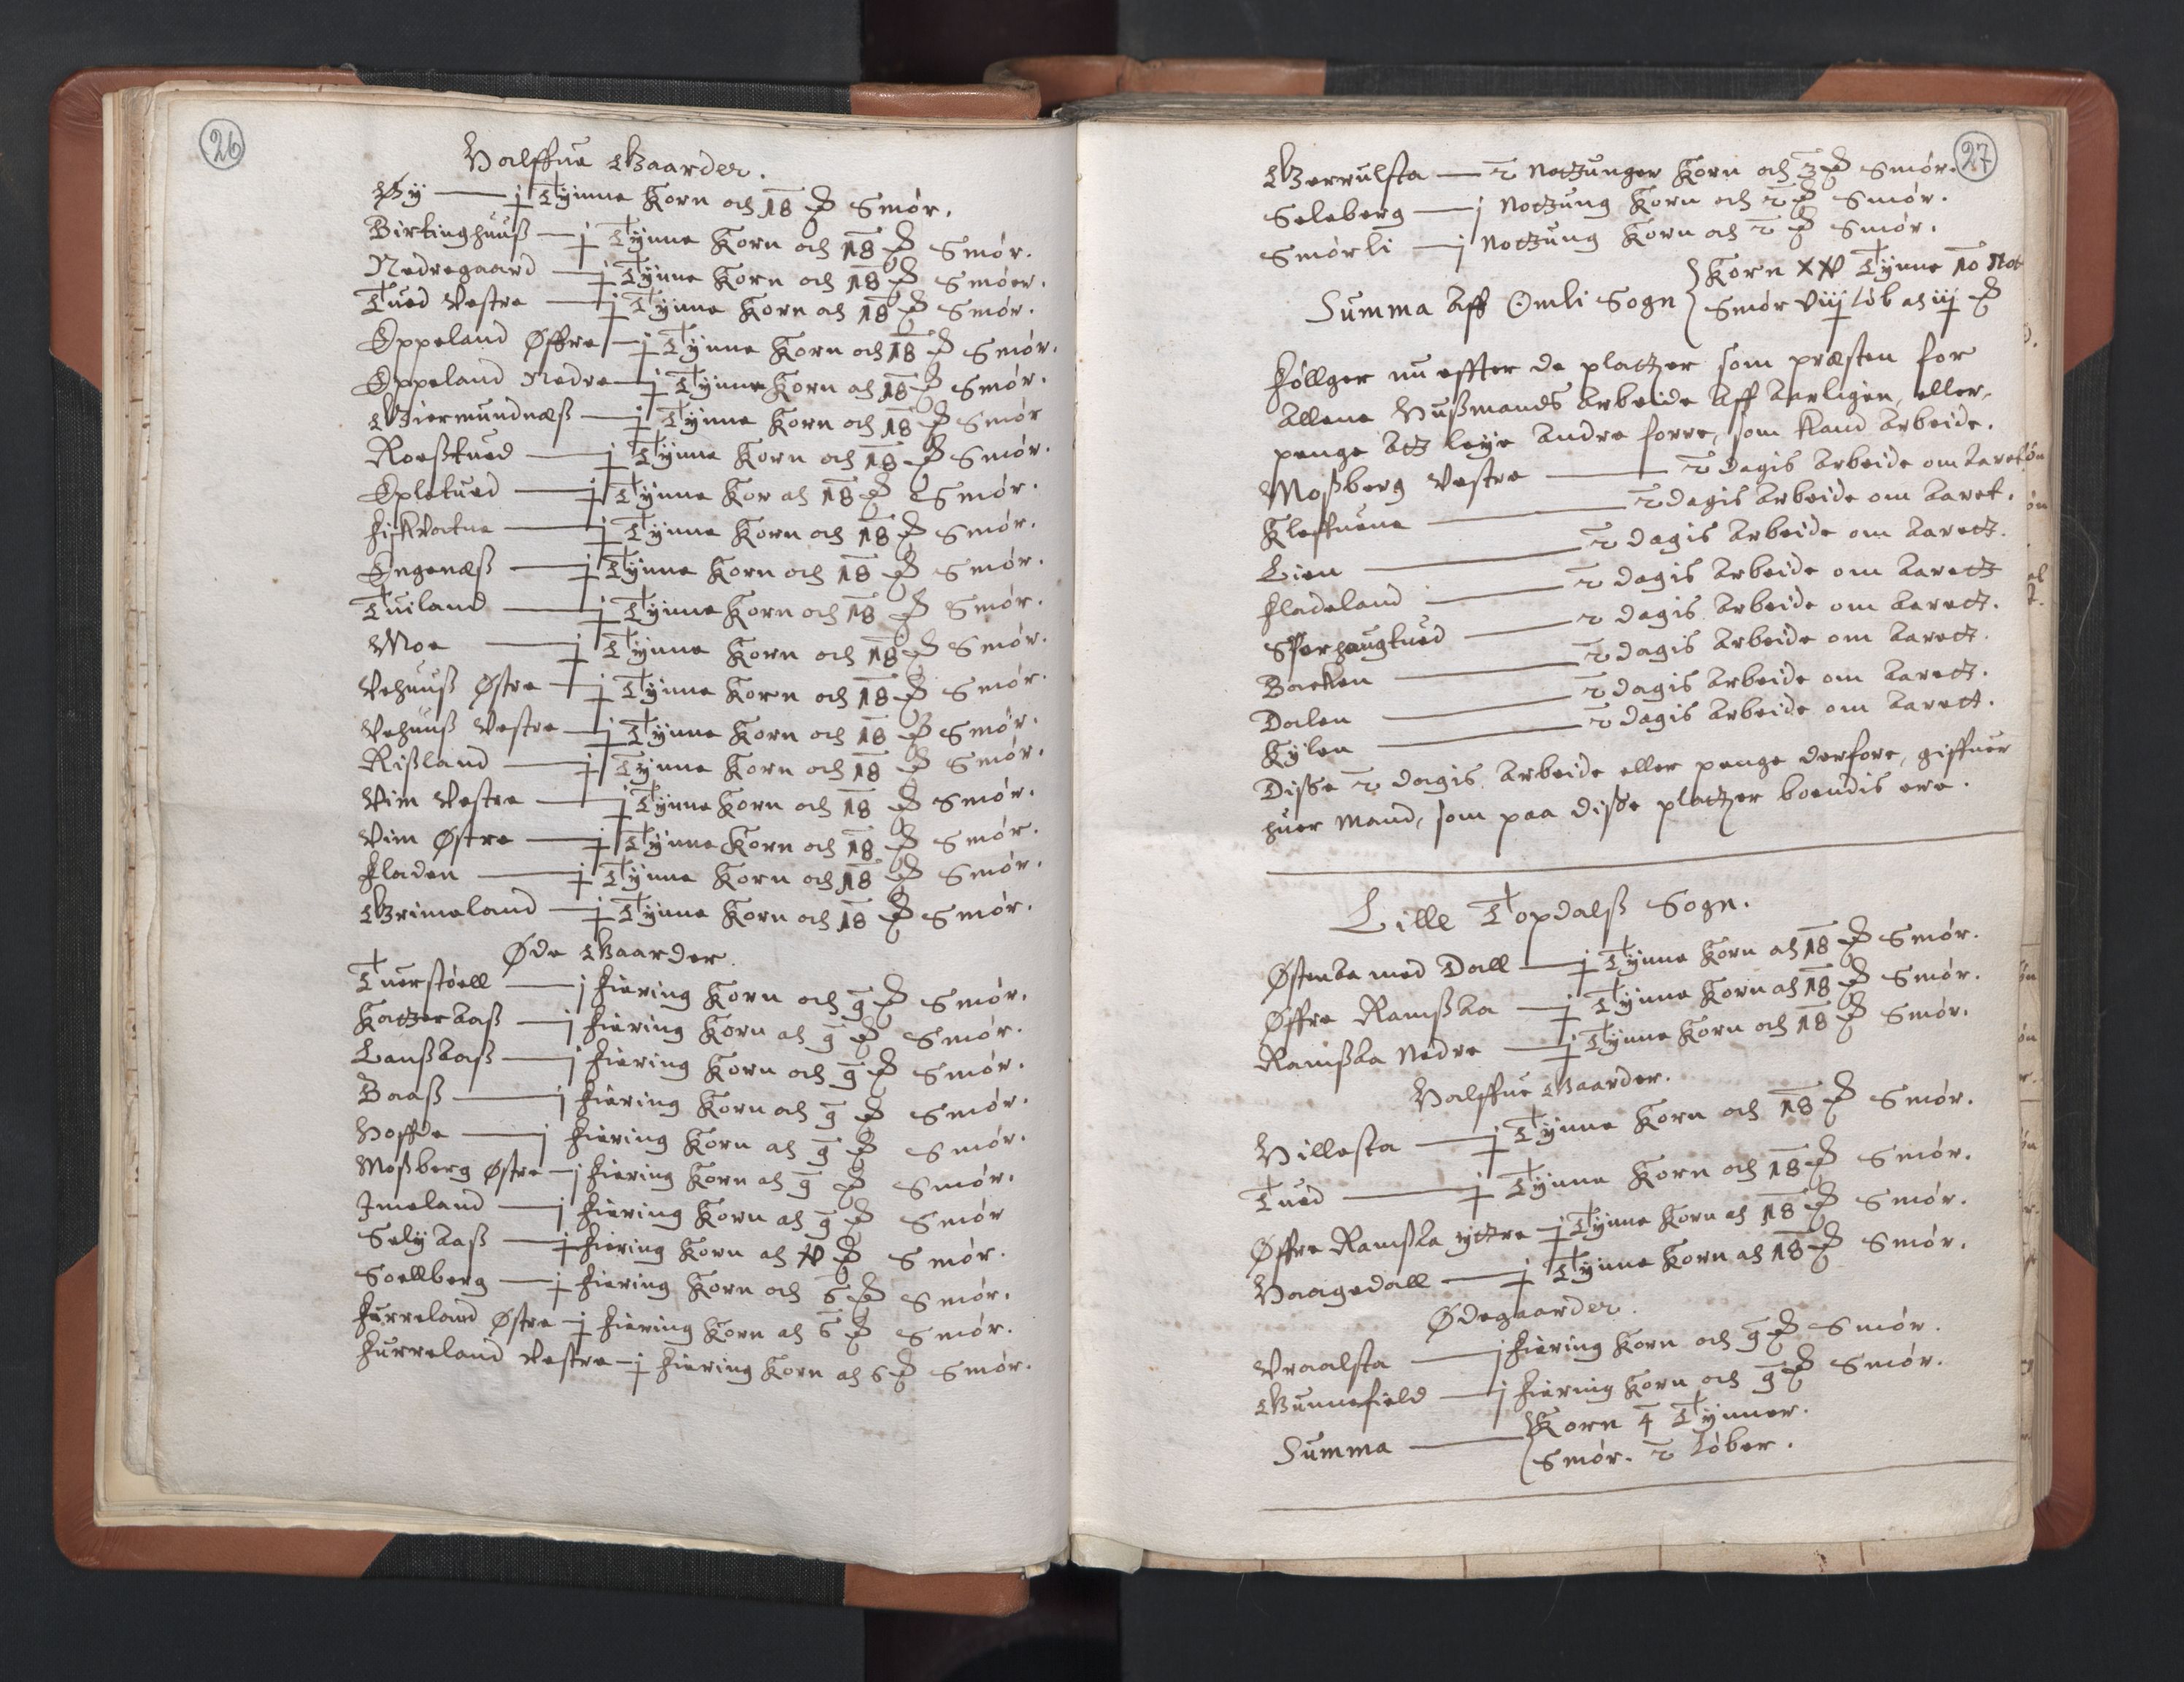 26
Halffue Gaarder.
By — j Tynne Korn och 18 ℔ Smør.
Birkinghuuß — j Tynne Korn och 18 ℔ Smør.
Nedregaard — j Tynne Korn och 18 ℔ Smør.
Tued Vestre — j Tynne Korn och 18 ℔ Smør.
Oppeland Øffre — j Tynne Korn och 18 ℔ Smør.
Oppeland Nedre — j Tynne Korn och 18 ℔ Smør.
Giermundnæß — j Tynne Korn och 18 ℔ Smør
Roeßtued — j Tynne Korn och 18 ℔ Smør.
Opletued — j Tynne Kor och 18 ℔ Smør.
Fiskvatne — j Tynne Korn och 18 ℔ Smør.
Engenæß — j Tynne Korn och 18 ℔ Smør.
Tuiland — j Tynne Korn och 18 ℔ Smør.
Moe — j Tynne Korn och 18 ℔ Smør.
Vehuuß Østre — j Tynne Korn och 18 ℔ Smør.
Vehuuß Vestre — j Tynne Korn och 18 ℔ Smør.
Rißland — j Tynne Korn och 18 ℔ Smør.
Vim Vestre — j Tynne Korn och 18 ℔ Smør.
Vim Østre — j Tynne Korn och 18 ℔ Smør.
Fladen — j Tynne Korn och 18 ℔ Smør.
Grimeland — j Tynne Korn och 18 ℔ Smør.
Øde Gaarder.
Tuerstøell — j fiering Korn och 9 ℔ Smør.
Katzeraaß — j fiering Korn och 9 ℔ Smør.
Lanßaaß — j fiering Korn och 9 ℔ Smør.
Baaß — j fiering Korn och 9 ℔ Smør.
Hoffde — j fiering Korn och 9 ℔ Smør.
Moßberg Østre — j fiering Korn och 9 ℔ Smør.
Imeland — j fiering Korn och 9 ℔ Smør
Selyaaß — j fiering Korn och ℔ Smør.
Soellberg — j fiering Korn och 6 ℔ Smør.
Furreland Østre — j fiering Korn och 6 ℔ Smør.
Furreland Vestre — j fiering Korn och 6 ℔ Smør.
27
Gerrulsta — 2 Notzunger Korn och 3 ℔ Smør.
Seleberg — j Notzung Korn och 2 ℔ Smør.
Smørli — j Notzung Korn och 2 ℔ Smør.
Korn XV Tynne 10 Not
Summa aff Omli Sogn { Smør viij løb och iij ℔
Føllger nu effter de platzer som præsten for
allene Hußmands arbeide aff aarligen, eller
penge att leye andre forre, som kand arbeide.
Moßberg Vestre — 2 dagis arbeide om aaret
Kleffuene — 2 dagis arbeide om aaret.
Lien — 2 dagis arbeide om aarett.
Fladeland — 2 dagis arbeide om aarett
Sperhaugtued — 2 dagis arbeide om aarett.
Backen — 2 dagis arbeide om aarett.
Dalen — 2 dagis arbeide om aarett.
Kylen — 2 dagis arbeide om aarett.
Disse 2 dagis arbeide eller penge derfore, giffuer
huer Mand, som paa disse platzer boendis ere.
Lille Topdalß Sogn.
Østenaa med Dall — j Tynne Korn och 18 ℔ Smør.
Øffre Ramßaa — j Tynne Korn och 18 ℔ Smør.
Ramßaa Nedre — j Tynne Korn och 18 ℔ Smør.
Halffue Gaarder.
Hillesta — j Tynne Korn och 18 ℔ Smør.
Tued — j Tynne Korn och 18 ℔ Smør.
Øffre Ramßaa yttre — j Tynne Korn och 18 ℔ Smør.
Haagedall — j Tynne Korn och 18 ℔ Smør.
Ødegaarder.
Vraalsta — j fiering Korn och 9 ℔ Smør.
Gunnefield — j fiering Korn och 9 ℔ Smør.
Korn 4 Tynner.
Summa — { Smør. 2 Løber.